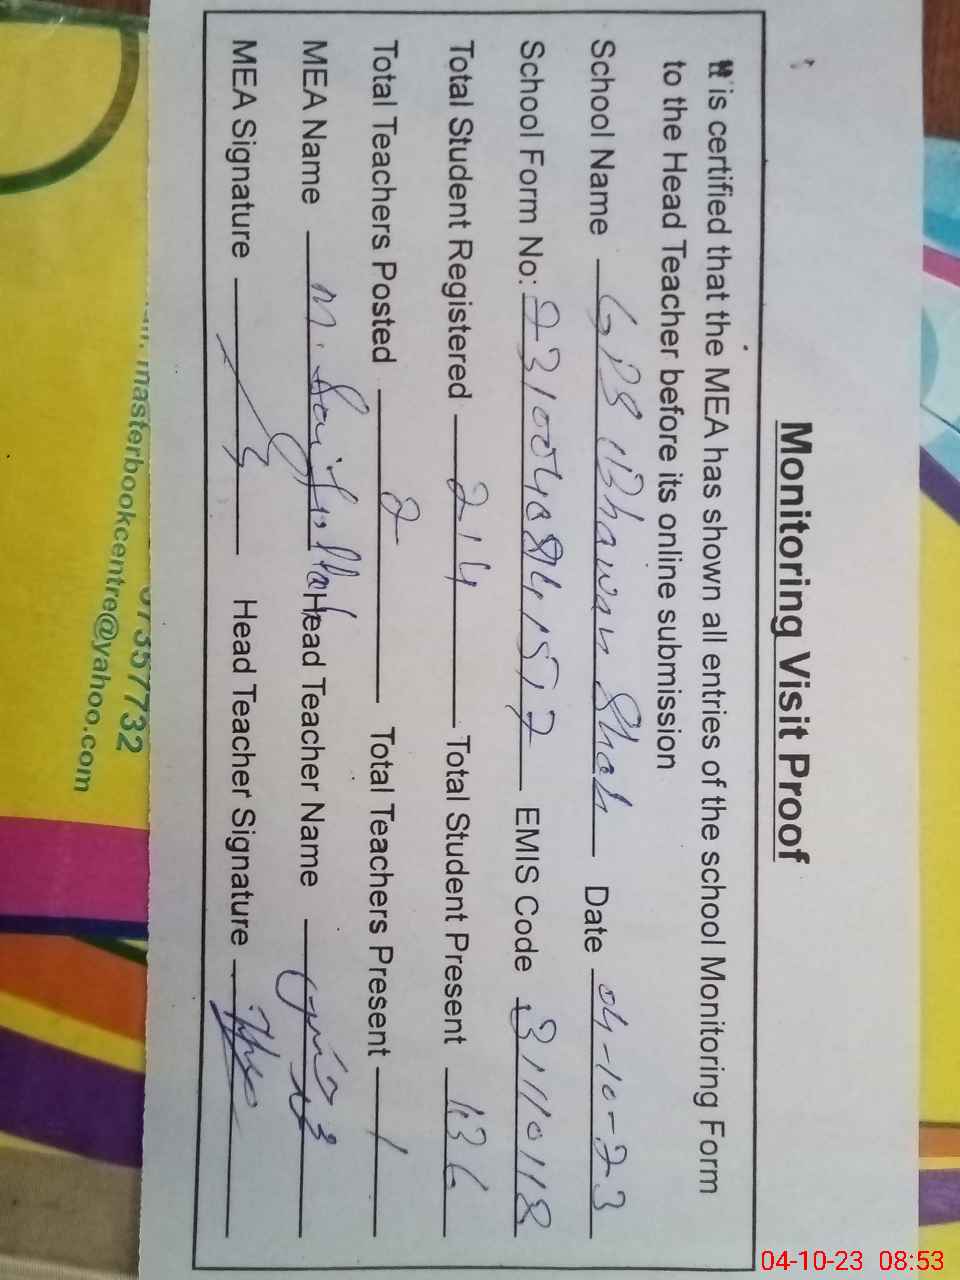 Monitoring Visit Proof
It is certified that the MEA has shown all entries of the school Monitoring Form
to the Head Teacher before its online submission
School Name GPS Bhawan Shah Date 04-10-23
School Form No: EMIS Code 31110118
Total Student Registered 214 Total Student Present 136
Total Teachers Posted 2 Total Teachers Present 1
MEA Name M. Saifullah Head Teacher Name
MEA Signature Head Teacher Signature
masterbookcentre@yahoo.com
7357732
04-10-23 08:53